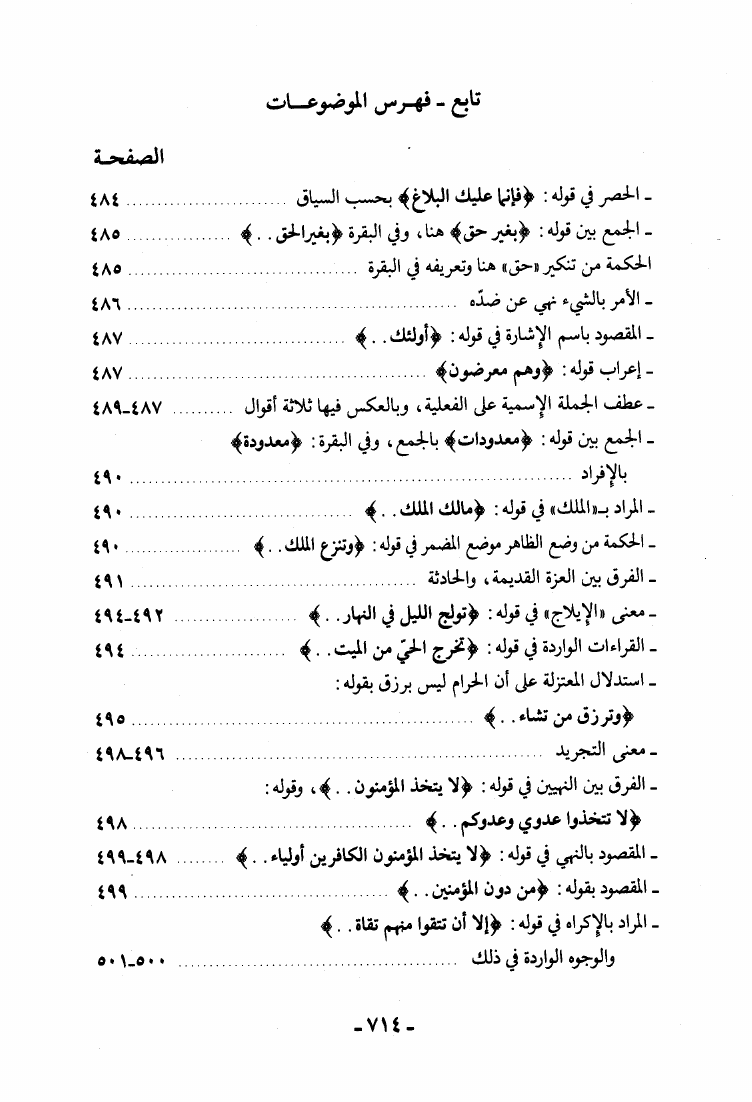 تابع - فهرس الموضوعات
الصفحة
- الحصر في قوله: ﴿فإنما عليك البلاغ﴾ بحسب السياق ........ ٤٨٤
- الجمع بين قوله: ﴿بغير حق﴾ هنا، وفي البقرة ﴿بغير الحق..﴾ ........ ٤٨٥
الحكمة من تنكير «حق» هنا وتعريفه في البقرة ........ ٤٨٥
- الأمر بالشيء نهي عن ضدّه ........ ٤٨٦
- المقصود باسم الإشارة في قوله: ﴿أولئك..﴾ ........ ٤٨٧
- إعراب قوله: ﴿وهم معرضون﴾ ........ ٤٨٧
- عطف الجملة الإسمية على الفعلية، وبالعكس فيها ثلاثة أقوال ........ ٤٨٧-٤٨٩
- الجمع بين قوله: ﴿معدودات﴾ بالجمع، وفي البقرة: ﴿معدودة﴾
بالإفراد ........ ٤٩٠
- المراد بـ«الملك» في قوله: ﴿مالك الملك..﴾ ........ ٤٩٠
- الحكمة من وضع الظاهر موضع المضمر في قوله: ﴿وتنزع الملك..﴾ ........ ٤٩٠
- الفرق بين العزة القديمة، والحادثة ........ ٤٩١
- معنى «الإيلاج» في قوله: ﴿تولج الليل في النهار..﴾ ........ ٤٩٢-٤٩٤
- القراءات الواردة في قوله: ﴿تخرج الحيّ من الميت..﴾ ........ ٤٩٤
- استدلال المعتزلة على أن الحرام ليس برزق بقوله:
﴿وترزق من تشاء..﴾ ........ ٤٩٥
- معنى التجريد ........ ٤٩٦-٤٩٨
- الفرق بين النهيين في قوله: ﴿لا يتخذ المؤمنون..﴾، وقوله:
﴿لا تتخذوا عدوي وعدوكم..﴾ ........ ٤٩٨
- المقصود بالنهي في قوله: ﴿لا يتخذ المؤمنون الكافرين أولياء..﴾ ........ ٤٩٨-٤٩٩
- المقصود بقوله: ﴿من دون المؤمنين..﴾ ........ ٤٩٩
- المراد بالإكراه في قوله: ﴿إلا أن تتقوا منهم تقاة..﴾
والوجوه الواردة في ذلك ........ ٥٠٠-٥٠١
- ٧١٤ -